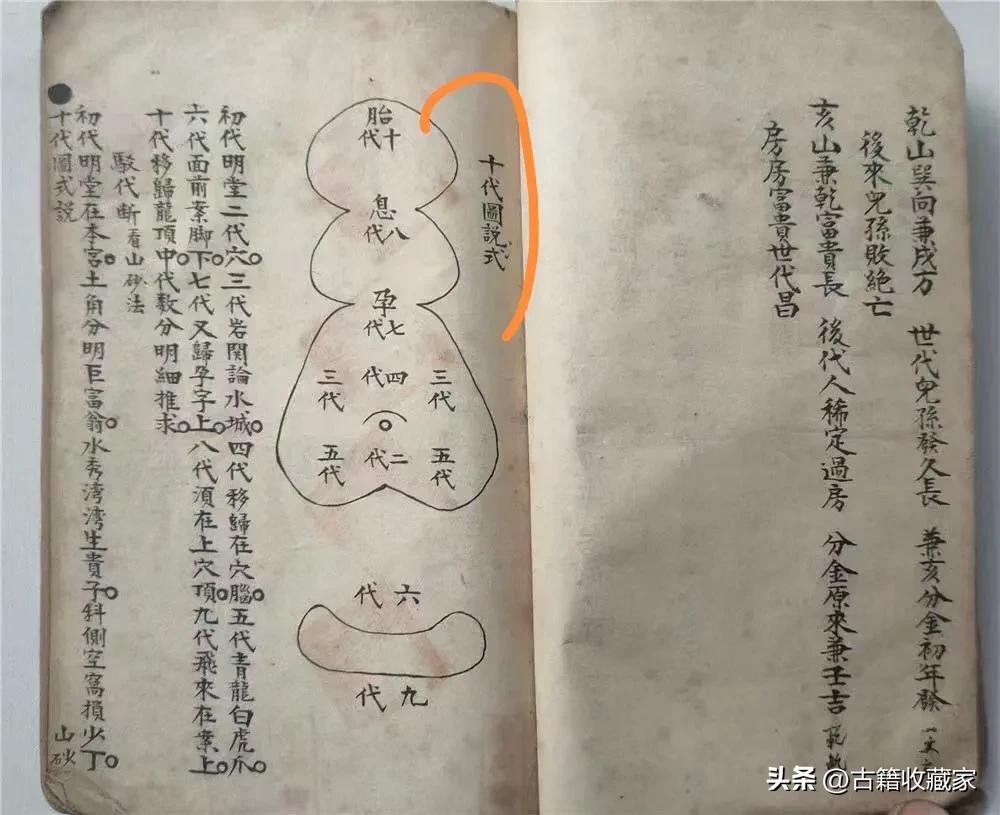 乾山巽向兼戌方　世代兒孫發久長　兼亥分金初年發
後來兒孫敗絕亡
亥山兼乾富貴長　後代人稀定過房　分金原來兼壬吉
房房富貴世代昌
十代圖説式
胎
十代
息
八代
孕
七代
三代
四代
三代
五代
二代
五代
六代
九代
初代明堂二代穴　三代岩関論水城　四代移歸在穴腦　五代青龍白虎爪
六代面前案脚下　七代又歸孕字上　八代湏在上穴頂　九代飛來在案上
十代移歸龍頂中　代數分明細推求
駁代斷看山砂法
初代明堂在本宮　土角分明巨富翁　水秀湾湾生貴子　斜側空窩損少丁
十代圖式説
山
头条 @古籍收藏家